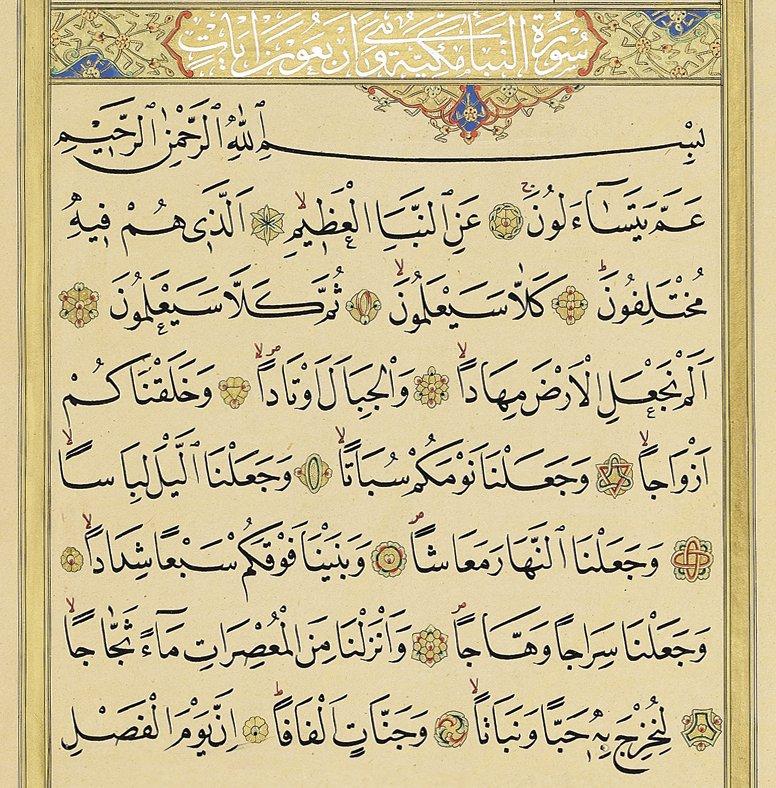 سورة النبأ مكية وهي اربعون ايات
بِسْمِ ٱللّٰهِ ٱلرَّحْمٰنِ ٱلرَّحٖيمِ
عَمَّ يَتَسَآءَلُونَۚ عَنِ ٱلنَّبَأِ الْعَظٖيمِۙ اَلَّذٖى هُمْ فٖيهِ
مُخْتَلِفُونَؕ كَلَّا سَيَعْلَمُونَۙ ثُمَّ كَلَّا سَيَعْلَمُونَ
اَلَمْ نَجْعَلِ الْاَرْضَ مِهَادًاۙ وَالْجِبَالَ اَوْتَادًاۙ وَخَلَقْنَاكُمْ
اَزْوَاجًاۙ وَجَعَلْنَا نَوْمَكُمْ سُبَاتًاۙ وَجَعَلْنَا الَّيْلَ لِبَاسًاۙ
وَجَعَلْنَا النَّهَارَ مَعَاشًا وَبَنَيْنَا فَوْقَكُمْ سَبْعًا شِدَادًاۙ
وَجَعَلْنَا سِرَاجًا وَهَّاجًا وَاَنْزَلْنَا مِنَ الْمُعْصِرَاتِ مَآءً ثَجَّاجًاۙ
لِنُخْرِجَ بِهٖ حَبًّا وَنَبَاتًاۙ وَجَنَّاتٍ اَلْفَافًاؕ اِنَّ يَوْمَ الْفَصْلِ